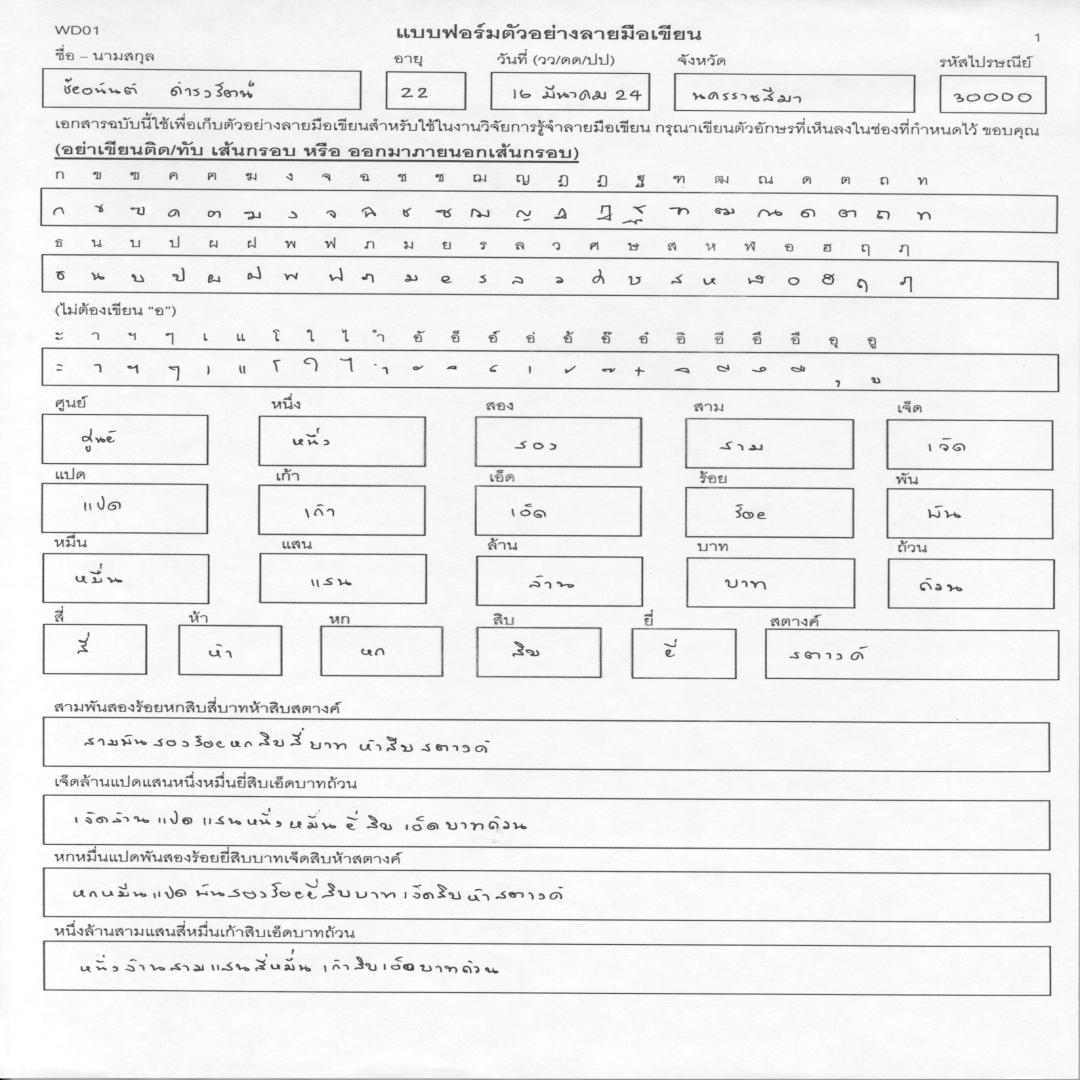 WD01
แบบฟอร์มตัวอย่างลายมือเขียน
1
ชื่อ – นามสกุล อายุ วันที่ (วว/ดด/ปป) จังหวัด รหัสไปรษณีย์
22 16 มีนาคม 24 นครราชสีมา 30000
เอกสารฉบับนี้ใช้เพื่อเก็บตัวอย่างลายมือเขียนสำหรับใช้ในงานวิจัยการรู้จำลายมือเขียน กรุณาเขียนตัวอักษรที่เห็นลงในช่องที่กำหนดไว้ ขอบคุณ
(อย่าเขียนติด/ทับ เส้นกรอบ หรือ ออกมาภายนอกเส้นกรอบ)
ก ข ฃ ค ฅ ฆ ง จ ฉ ช ซ ฌ ญ ฎ ฏ ฐ ฑ ฒ ณ ด ต ถ ท
ก ข ฃ ค ฅ ฆ ง จ ฉ ช ซ ฌ ญ ฎ ฏ ฐ ฑ ฒ ณ ด ต ถ ท
ธ น บ ป ผ ฝ พ ฟ ภ ม ย ร ล ว ศ ษ ส ห ฬ อ ฮ ฤ ภ
ธ น บ ป ผ ฝ พ ฟ ภ ม ย ร ล ว ศ ษ ส ห ฬ อ ฮ ฤ ภ
(ไม่ต้องเขียน "อ")
ะ า ฯ ๆ เ แ โ ใ ไ ำ อั อ็ อ์ อ่ อ้ อ๊ อ๋ อิ อี อึ อื อุ อู
ะ า ฯ ๆ เ แ โ ใ ไ ำ ั ็ ์ ่ ้ ๊ ๋ ิ ี ึ ื ุ ู
ศูนย์ หนึ่ง สอง สาม เจ็ด
ศูนย์ หนึ่ง สอง สาม เจ็ด
แปด เก้า เอ็ด ร้อย พัน
แปด เก้า เอ็ด ร้อย พัน
หมื่น แสน ล้าน บาท ถ้วน
หมื่น แสน ล้าน บาท ถ้วน
สี่ ห้า หก สิบ ยี่ สตางค์
สี่ ห้า หก สิบ ยี่ สตางค์
สามพันสองร้อยหกสิบสี่บาทห้าสิบสตางค์
สามพันสองร้อยหกสิบสี่บาท ห้าสิบสตางค์
เจ็ดล้านแปดแสนหนึ่งหมื่นยี่สิบเอ็ดบาทถ้วน
เจ็ดล้านแปดแสนหนึ่งหมื่นยี่สิบ เอ็ดบาทถ้วน
หกหมื่นแปดพันสองร้อยยี่สิบบาทเจ็ดสิบห้าสตางค์
หกหมื่นแปดพันสองร้อยยี่สิบบาทเจ็ดสิบห้าสตางค์
หนึ่งล้านสามแสนสี่หมื่นเก้าสิบเอ็ดบาทถ้วน
หนึ่งล้านสามแสนสี่หมื่น เก้าสิบเอ็ดบาทถ้วน